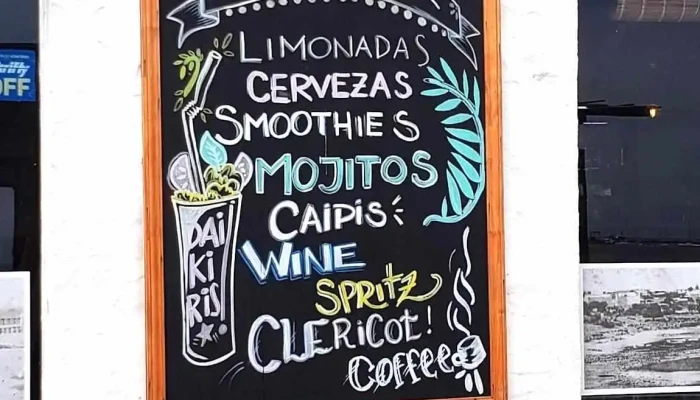 LIMONADAS
CERVEZAS
SMOOTHIES
MOJITOS
CAIPIS
WINE
SPRITZ
CLERICOT!
COFFEE
DAI
KI
RIS!
OFF